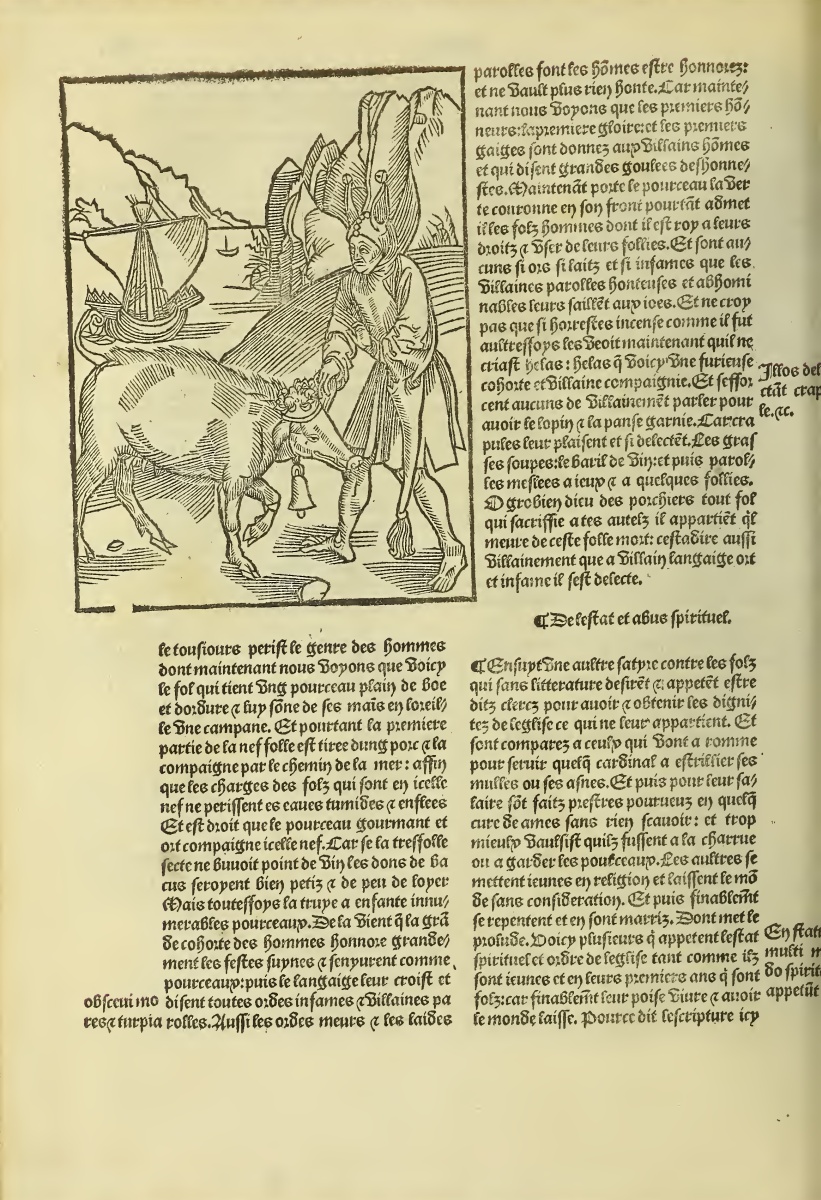 le tousiours perist le genre des hommes
dont maintenant nous voyons que voicy
le fol qui tient vng pourceau plain de boe
et dordure ⁊ luy sõne de ses mais en loreil/
le vne campane. Et pourtant la premiere
partie de la nef folle est tiree dung porc ⁊ la
compaigne par le chemin de la mer: affin
que les charges des folz qui sont en icelle
nef ne perissent es eaues tumides ⁊ enflees
Et est droit que le pourceau gourmant et
ort compaigne icelle nef. Car se la tresfolle
secte ne buuoit point de vin les dons de ba
cus seroyent bien petiz ⁊ de peu de loyer
Mais toutesfoys la truye a enfante innu/
merables pourceaux. De la vient q̃ la grã
de cohorte des hommes honnore grande/
ment les festes suynes ⁊ senyurent comme
pourceaux: puis le langaige leur croist et
disent toutes ordes infames ⁊ villaines pa
rolles. Aussi les ordes meurs ⁊ les laides
obsceui mo
res ⁊ turpia
parolles font les hõmes estre honnorez:
et ne vault plus rien honte. Car mainte/
nant nous voyons que les premiers hõ/
neurs: la premiere gloire: et les premiers
gaiges sont donnez aux villains hõmes
et qui disent grandes goulees deshonne/
stes. Maintenãt porte le pourceau la ver
te couronne en son front pourtãt admet
il les folz hommes dont il est roy a leurs
droitz ⁊ vser de leurs follies. Et sont au/
cuns si ors si laitz et si infames que les
villaines parolles honteuses et abhomi
nables leurs saillẽt aux ioes. Et ne croy
pas que si horrestes incense comme il fut
aultresfoys les veoit maintenant quil ne
criast helas: helas q̃ voicy vne furieuse
cohorte et villaine compaignie. Et seffor
cent aucuns de villainemẽt parler pour
auoir le lopin ⁊ la panse garnie. Car cra
pules leur plaisent et si delectẽt. Les gras
ses soupes: le baril de vin: et puis parol/
les meslees a ieux ⁊ a quelques follies.
O grobien dieu des porchiers tout fol
qui sacriffie a tes autelz il appartiẽt q̃l
meure de ceste folle mort: cestadire aussi
villainement que a villain langaige ort
et infame il sest delecte.
Illos del
ctãt crap
le. ⁊c.
¶ De lestat et abus spirituel.
¶ Ensuyt vne aultre satyre contre les folz
qui sans litterature desirẽt ⁊ appetẽt estre
ditz clercz pour auoir ⁊ obtenir les digni/
tez de leglise ce qui ne leur appartient. Et
sont comparez a ceulx qui vont a romme
pour seruir quelq̃ cardinal a estrillier ses
mulles ou ses asnes. Et puis pour leur sa/
laire sõt faitz prestres pourueuz en quelq̃
cure de ames sans rien scauoir: et trop
mieulx vaulsist quilz fussent a la charrue
ou a garder les poulceaux. Les aultres se
mettent ieunes en religion et laissent le mõ
de sans consideration. Et puis finablem̃t
se repentent et en sont marriz. Dont met le
prosude. Voicy plusieurs q̃ appetent lestat
spirituel et ordre de leglise tant comme ilz
sont ieunes et en leurs premiers ans q̃ sont
folz: car finablem̃t leur poise viure ⁊ auoir
le monde laisse. Pource dit lescripture icy
En stat
multi m
do spirit
appetũt